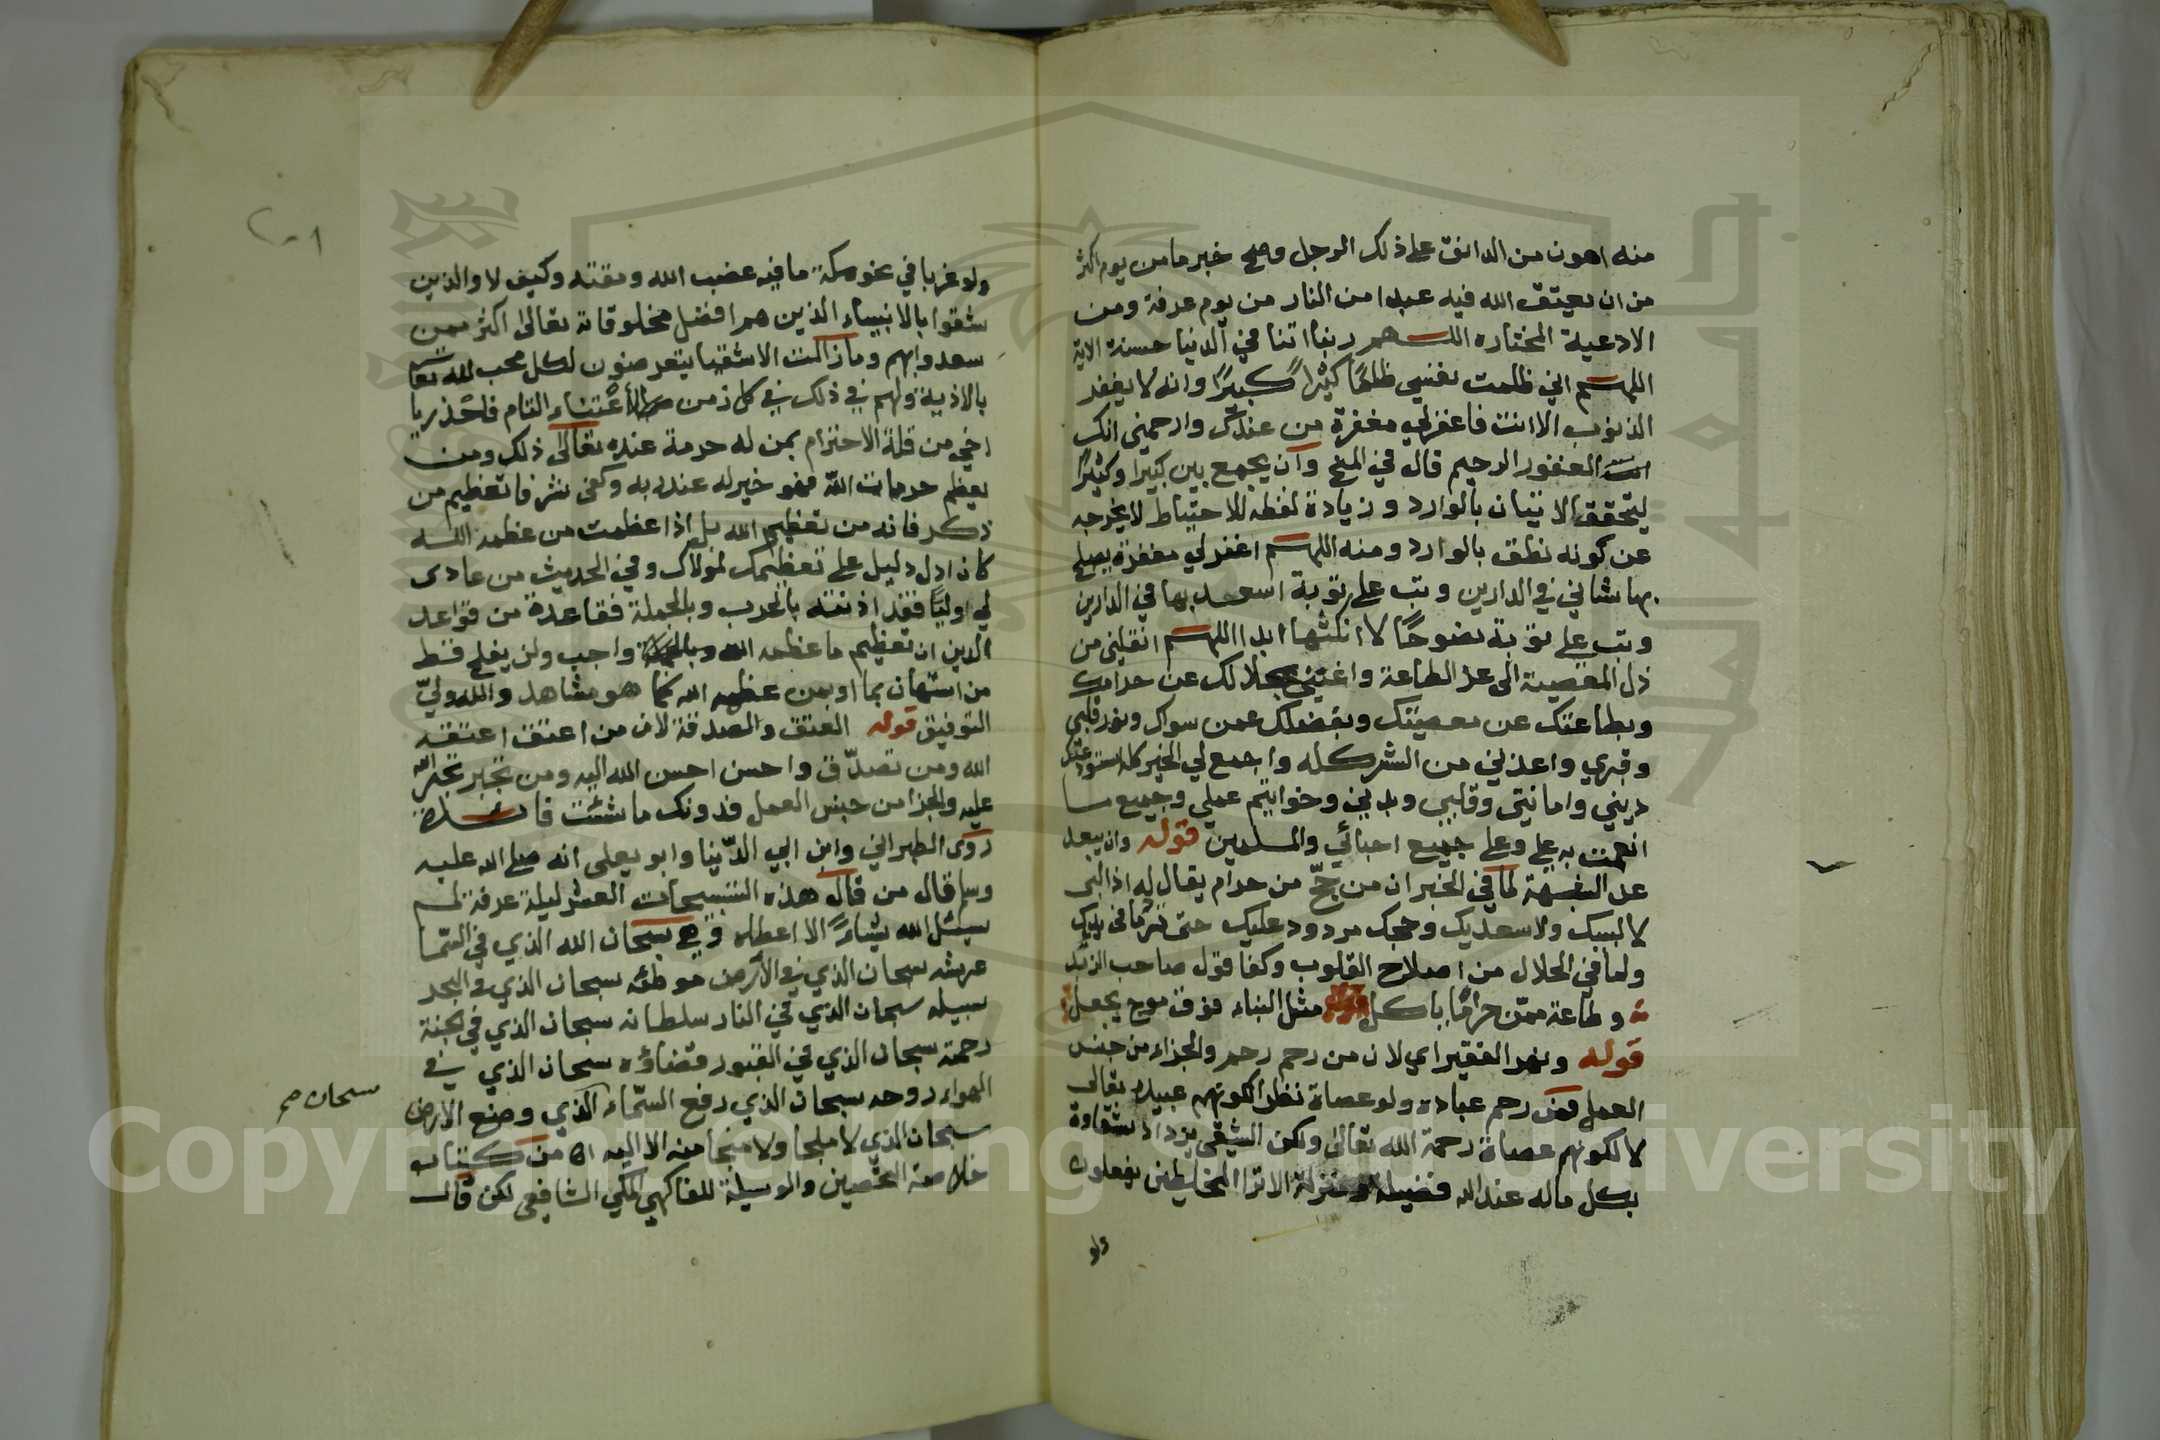 منه اهون من الدانق على ذلك الرجل وصح خبر ما من يوم اكثر
من ان يعتق الله فيه عبدا من النار من يوم عرفة ومن
الادعية المختاره اللهم ربنا اتنا في الدنيا حسنة الاية
اللهم اني ظلمت نفسي ظلمًا كثيرًا كبيرًا وانه لا يغفر
الذنوب الا انت فاغفر لي مغفرة من عندك وارحمني انك
انت الغفور الرحيم قال في المنح وان يجمع بين كبيرا وكثيرًا
ليتحقق الاتيان بالوارد وزيادة لفظه للاحتياط لا يخرجه
عن كونه نطق بالوارد ومنه اللهم اغفر لي مغفرة يصلح
بها شاني في الدارين وتب علي توبة اسعد بها في الدارين
وتب علي توبة نصوحًا لا انكثها ابدا اللهم انقلني من
ذل المعصية الى عز الطاعة واغنني بحلالك عن حرامك
وبطاعتك عن معصيتك وبفضلك عمن سواك ونور قلبي
وقبري واعذني من الشر كله واجمع لي الخير كله استودعتك
ديني وامانتي وقلبي وبدني وخواتيم عملي وجميع ما
انعمت به علي وعلى جميع احبائي والمسلمين قوله وان يبعد
عن الشبهة لما في الخبر ان من حج من حرام يقال له اذا لبى
لا لبيك ولا سعديك وحجك مردود عليك حتى ترد ما في يديك
ولما في الحلال من اصلاح القلوب وكفا قول صاحب الزبد
وطاعة ممن حرامًا ياكل مثل البناء فوق موج يجعل
قوله وبنهر الفقير اي لان من رحم رحم والجزاء من جنس
العمل فمن رحم عباده ولو عصاة نظر الكونهم عبيده تعالى
لا لكونهم عصاة رحمة الله تعالى ولكن الشقي يزداد شقاوة
بكل ماله عند الله فضيلة ومنزلة الا ترا المخالطين يفعلون
ولو
ولو غربا في نحو مكة ما فيه غضب الله ومقته وكيف لا والذين
شقوا بالانبياء الذين هم افضل مخلوقاته تعالى اكثر ممن
سعدوا بهم وما زالت الاشقيا يتعرضون لكل محب لله تعا
بالاذية ولهم في ذلك في كل زمن الأعتناء التام فاحذر يا
اخي من قلة الاحترام بمن له حرمة عنده تعالى ذلك ومن
يعظم حرمات الله فهو خير له عند ربه وكفى شرفا تعظيم من
ذكر فانه من تعظيم الله بل اذا عظمت من عظمه الله
كان ادل دليل على تعظيمك لمولاك وفي الحديث من عادى
لي وليًا فقد اذنته بالحرب وبالجملة فقاعدة من قواعد
الدين ان تعظيم ما عظمه الله واجب ولن يفلح قط
من استهان بما او بمن عظمه الله كما هو مشاهد والله ولي
التوفيق قوله العتق والصدقة لان من اعتق اعتقه
الله ومن تصدق واحسن احسن الله اليه ومن تجبر تجبر الله
عليه والجزا من جنس العمل فدونك ما شئت فائدة
روى الطبراني وابن ابي الدنيا وابو يعلى انه صلى الله عليه
وسلم قال من قال هذه التسبيحات العشر ليلة عرفة لم
يسئل الله شيئًا الا اعطاه وهي سبحان الله الذي في السما
عرشه سبحان الذي في الارض موطئه سبحان الذي في البحر
سبيله سبحان الذي في النار سلطانه سبحان الذي في الجنة
رحمته سبحان الذي في القبور قضاؤه سبحان الذي في
الهواء روحه سبحان الذي رفع السماء الذي وضع الارض
سبحان صح
سبحان الذي لا ملجا ولا منجا منه الا اليه اه من كتاب
خلاصة والوسيلة للفاكهي المكي الشافعي لكن قال